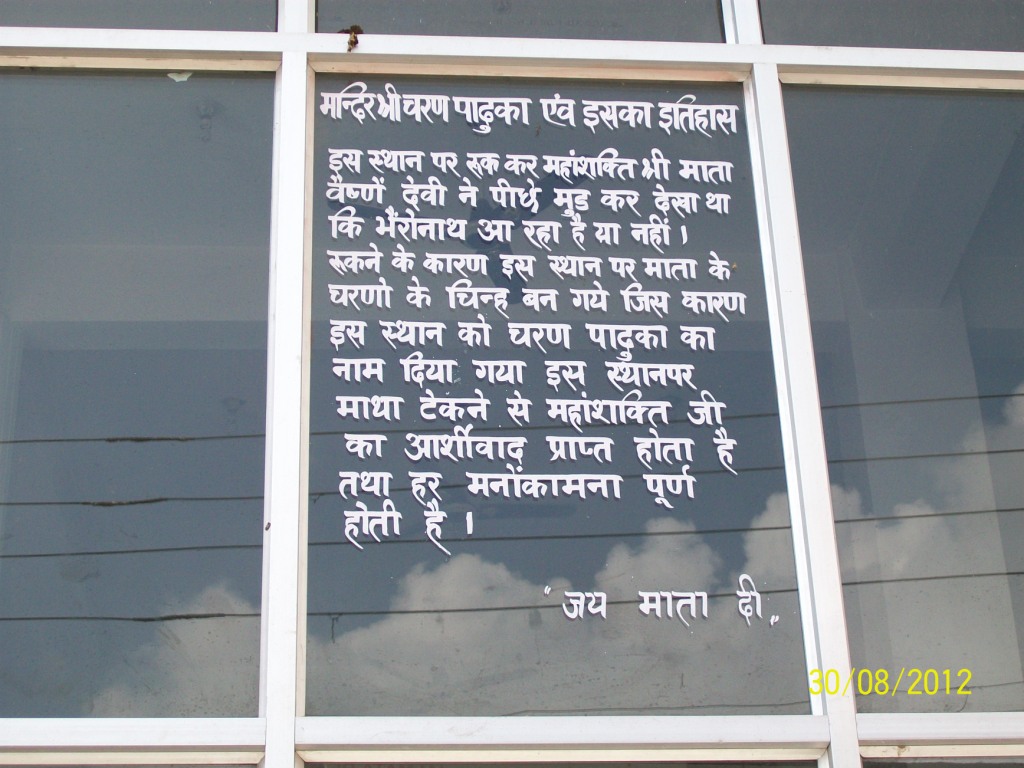 मन्दिर श्री चरण पादुका एंव इसका इतिहास
इस स्थान पर रुक कर महांशक्ति श्री माता
वैष्णों देवी ने पीछे मुड कर देखा था
कि भैंरोनाथ आ रहा है या नहीं।
रुकने के कारण इस स्थान पर माता के
चरणो के चिन्ह बन गये जिस कारण
इस स्थान को चरण पादुका का
नाम दिया गया इस स्थानपर
माथा टेकने से महांशक्ति जी
का आर्शीवाद प्राप्त होता है
तथा हर मनोंकामना पूर्ण
होती है।
"जय माता दी"
30/08/2012